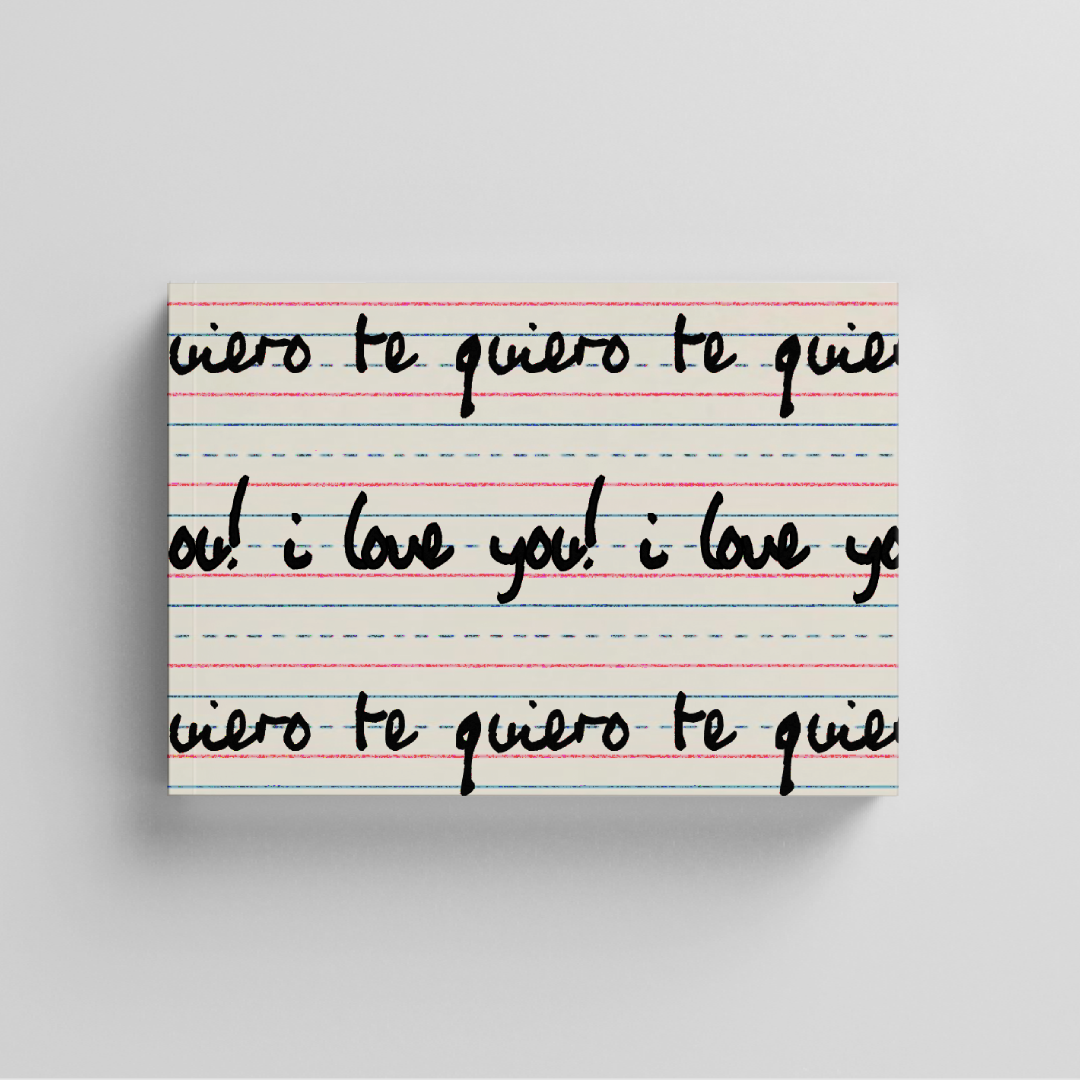 uiero te quiero te quier
ou! i love you! i love yo
uiero te quiero te quier